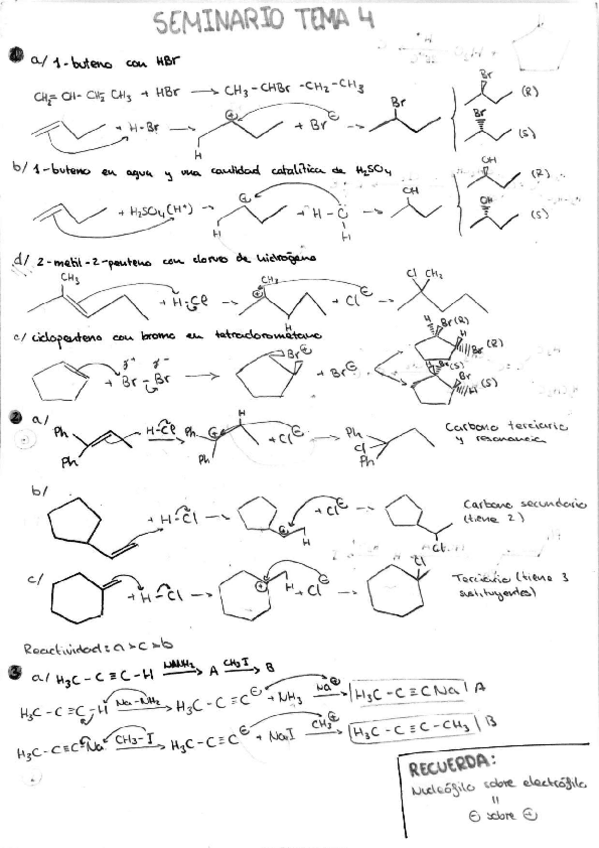 SEMINARIO TEMA 4
1 a/ 1-buteno con HBr
CH2=CH-CH2 CH3 + HBr → CH3-CHBr-CH2-CH3
+ H-Br → ⊕ + Br⊖ → Br Br (R)
Br (S)
b/ 1-buteno en agua y una cantidad catalítica de H2SO4
+ H2SO4 (H+) → ⊕ + H-O-H → OH OH (R)
OH (S)
d/ 2-metil-2-penteno con cloruro de hidrógeno
CH3 + H-Cl → CH3 ⊕ H + Cl⊖ → Cl CH3
c/ ciclopenteno con bromo en tetraclorometano
δ+ δ-
+ Br-Br → Br⊕ + Br⊖ → H Br(R) H Br (R)
Br(S) Br H (S)
2 a/
Ph Ph H-Cl → Ph Ph ⊕ H + Cl⊖ → Ph Cl Ph Carbono terciario
y resonancia
b/
+ H-Cl → ⊕ H + Cl⊖ → Cl Carbono secundario
(tiene 2)
c/
+ H-Cl → ⊕ H + Cl⊖ → Cl Terciario (tiene 3
sustituyentes)
Reactividad: a > c > b
3 a/ H3C-C≡C-H NaNH2→ A CH3I→ B
H3C-C≡C-H Na-NH2→ H3C-C≡C⊖ + NH3 Na⊕→ H3C-C≡CNa A
H3C-C≡CNa CH3-I→ H3C-C≡C⊖ + NaI CH3⊕→ H3C-C≡C-CH3 B
RECUERDA:
Nucleófilo sobre electrófilo
=
⊖ sobre ⊕